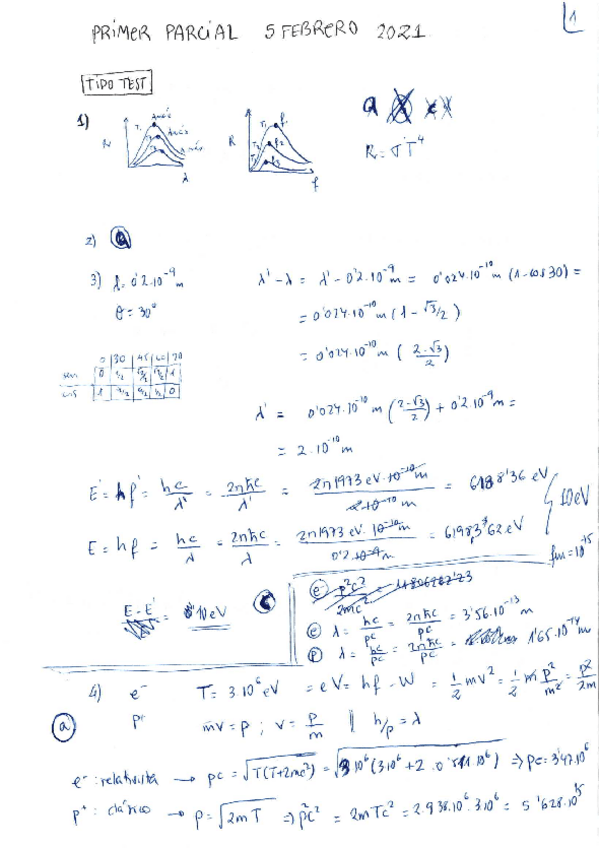 1
PRIMER PARCIAL 5 FEBRERO 2021
TIPO TEST
1)
R
λ
R
f
R = σT⁴
2) a
3) λ = 0'2·10⁻⁹ m
θ = 30°
λ' - λ = λ' - 0'2·10⁻⁹ m = 0'024·10⁻¹⁰ m (1 - cos 30) =
= 0'024·10⁻¹⁰ m (1 - √3/2)
= 0'024·10⁻¹⁰ m (2-√3/2)
0 | 30 | 45 | 60 | 90
sen
cos
λ' = 0'024·10⁻¹⁰ m (2-√3/2) + 0'2·10⁻⁹ m =
= 2·10⁻¹⁰ m
E' = hf' = hc/λ' = 2πħc/λ' = 2π1973 eV·10⁻¹⁰ m / 2·10⁻¹⁰ m = 6188'36 eV
E = hf = hc/λ = 2πħc/λ = 2π1973 eV·10⁻¹⁰ m / 0'2·10⁻⁹ m = 6198'362 eV
10 eV
fm = 10⁻¹⁵
E - E' = 10 eV
c
e⁻ p²c²/2mc² =
e λ = hc/pc = 2πħc/pc = 3'56·10⁻¹³ m
p λ = hc/pc = 2πħc/pc = 1'65·10⁻¹⁴ m
4) e⁻ T = 3·10⁶ eV = eV = hf - W = 1/2 mv² = 1/2 m p²/m² = p²/2m
a p⁺ mv = p ; v = p/m || h/p = λ
e⁻: relativista → pc = √T(T+2mc²) = √3·10⁶(3·10⁶ + 2·0'511·10⁶) ⇒ pc = 3'47·10⁶
p⁺: clásico → p = √2mT ⇒ p²c² = 2mTc² = 2·938·10⁶·3·10⁶ = 5'628·10¹⁵